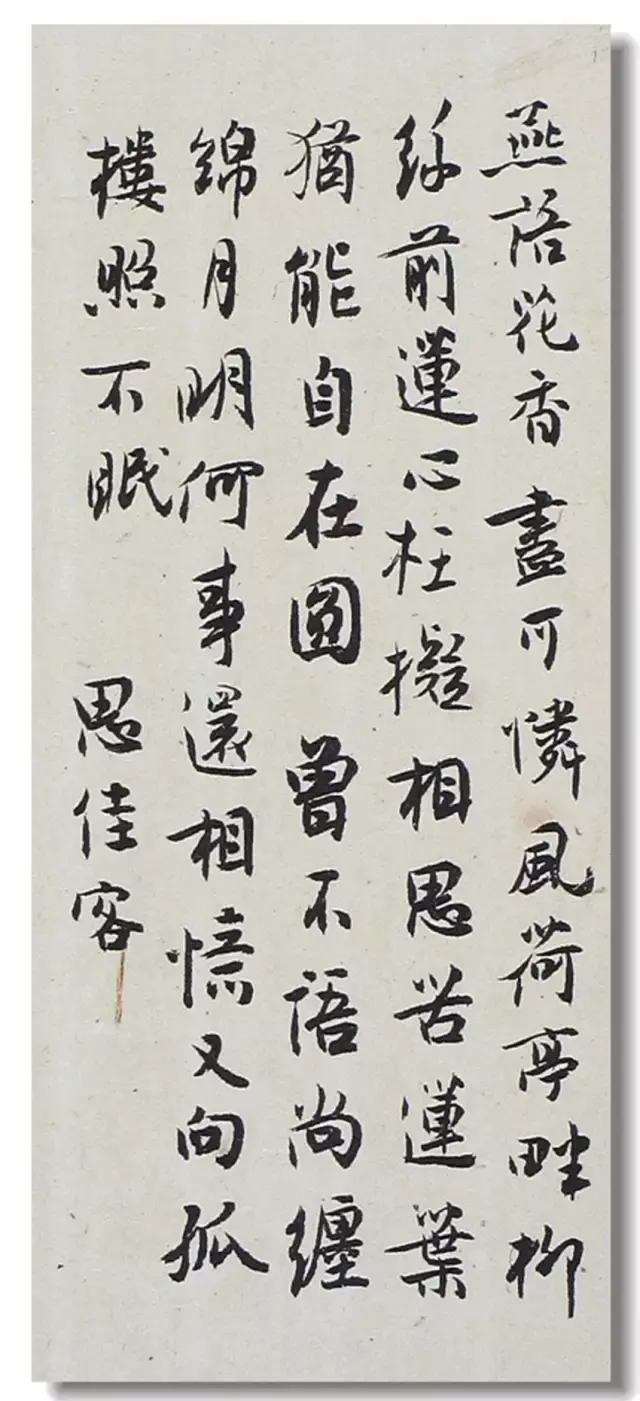 燕語花香盡可憐風荷亭畔柳
絲前蓮心枉擬相思苦蓮葉
猶能自在圓曾不語尚纏
綿月明何事還相又向孤
樓照不眠 思佳客